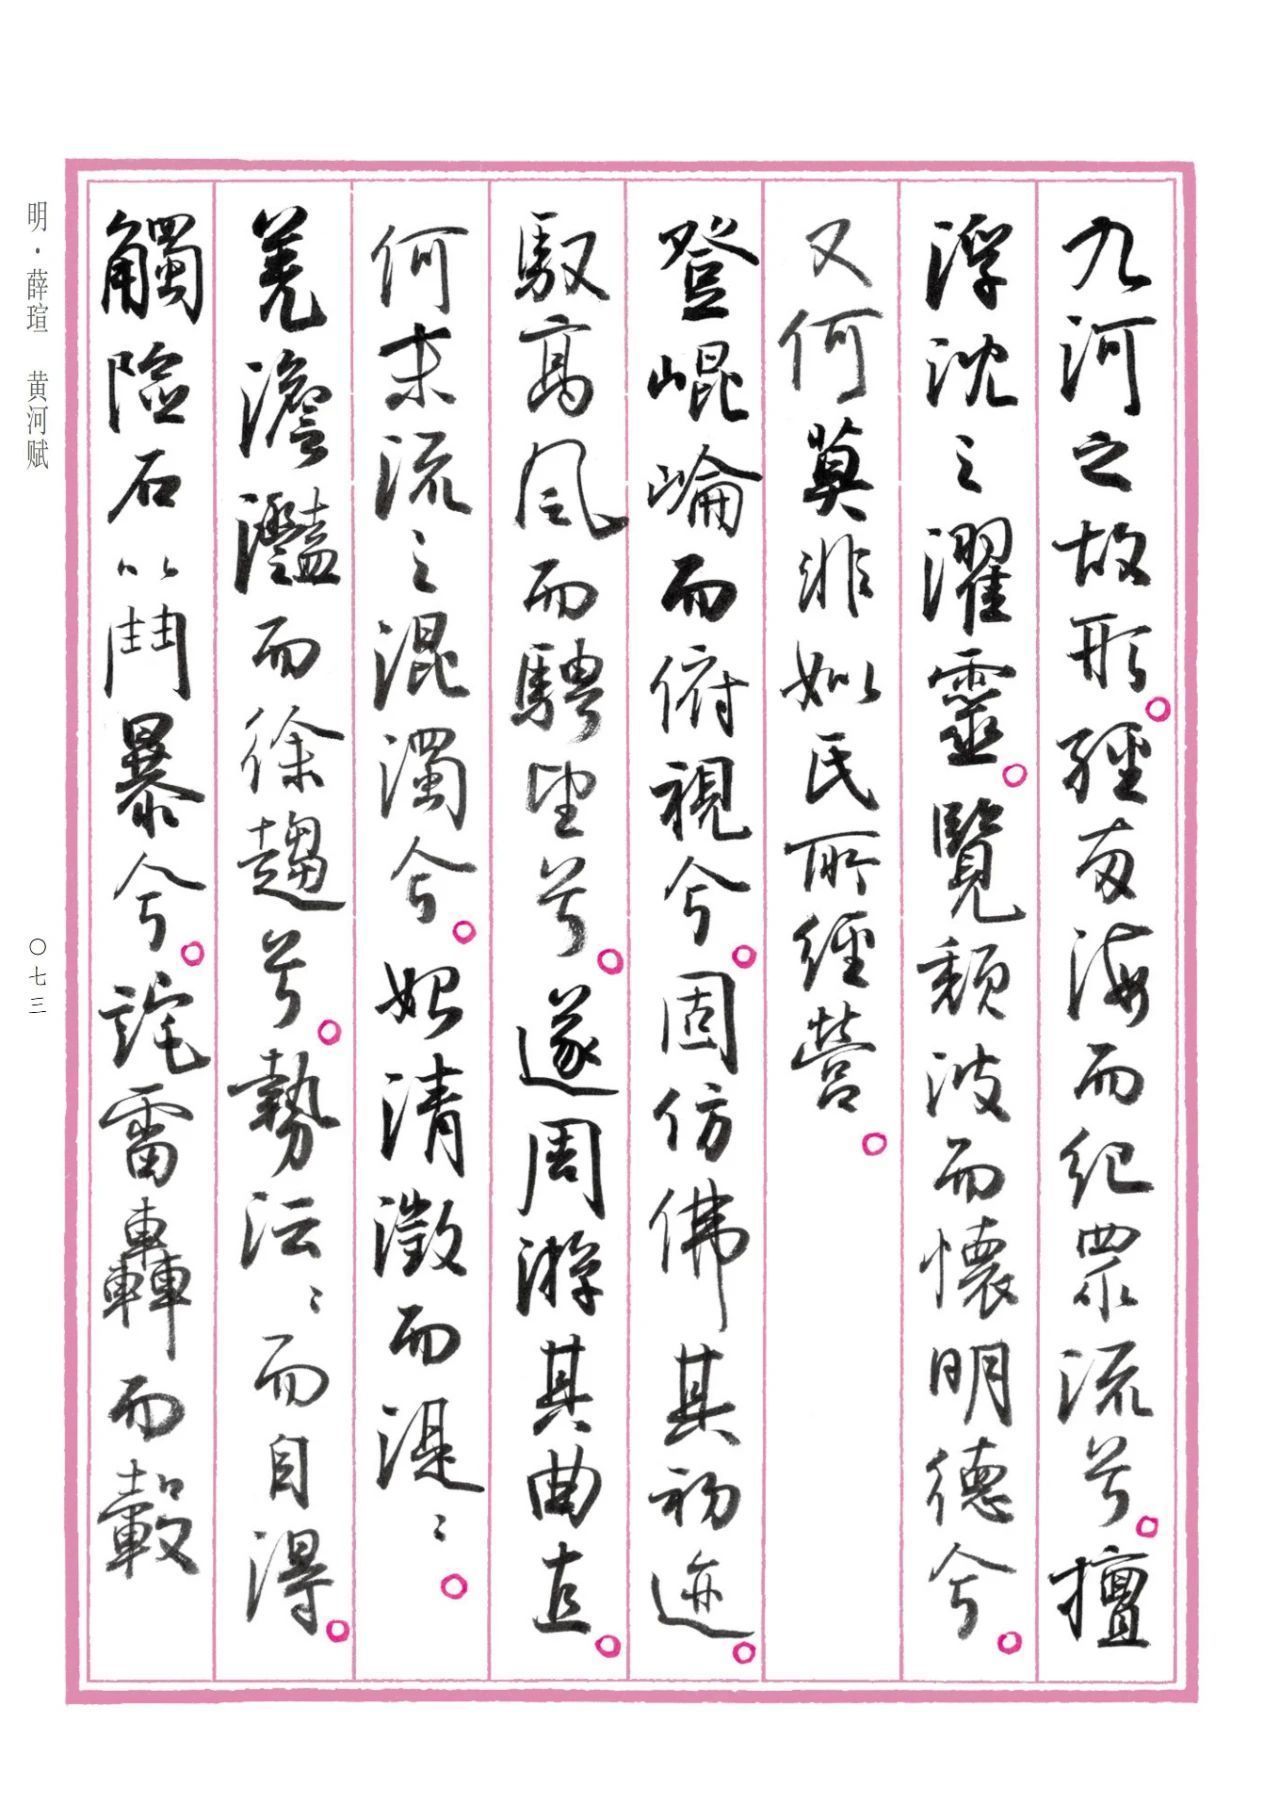 九河之故形。經南海而紀眾流兮。擅
浮沈之濯靈。覽頹波而懷明德兮。
又何莫非姒氏所經營。
登崐崘而俯視兮。固仿佛其初迹。
馭高風而騁望兮。遂周游其曲直。
何末流之混濁兮。始清澂而湜〻。
羌澹灩而徐趨兮。勢沄〻而自得。
觸險石以鬥暴兮。詫雷轟而轂
明·薛瑄　黄河赋
〇七三